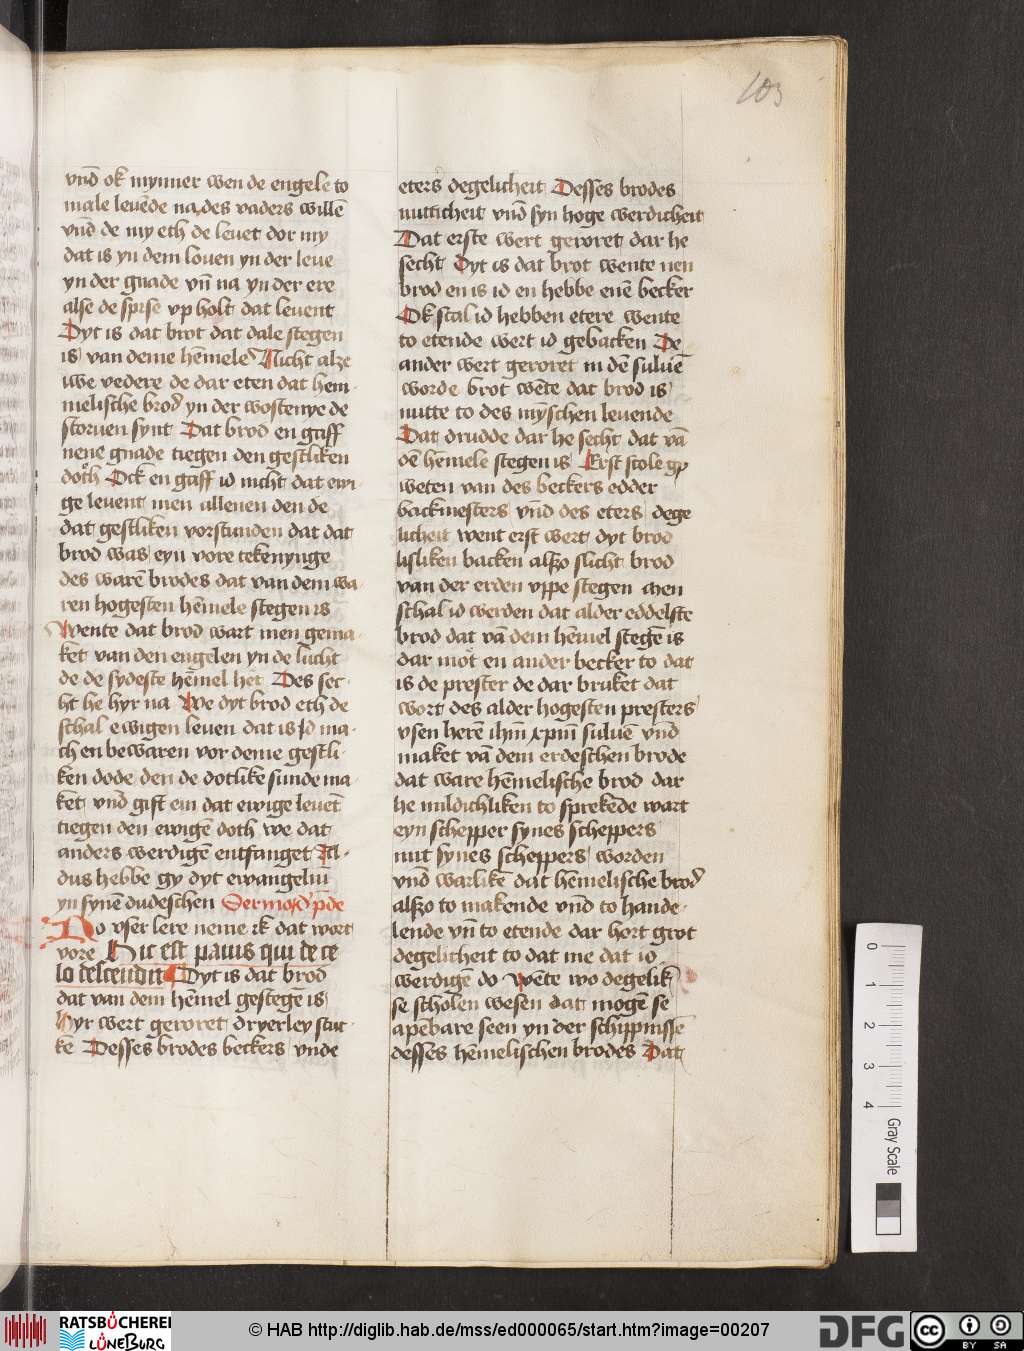 103
vnd ok mynner wen de engele to
male leuēde na des vaders willē
vnd de my eth de leuet dor my
dat is yn dem louen yn der leue
yn der gnade vn̄ na yn der ere
alse de spise vp holt dat leuent
Dyt is dat brot dat dale stegen
is van deme hēmele Nicht alze
iwe vedere de dar eten dat hem
melische brod yn der wostenye de
storuen synt Dat brod en gaff
nene gnade tiegen den gestliken
doth Ock en gaff id nicht dat ewi
ge leuent men allenen den de
dat gestliken vorstunden dat dat
brod was eyn vore tekenynge
des warē brodes dat van dem wa
ren hogesten hēmele stegen is
Wente dat brod wart men gema
ket van den engelen yn de lucht
de de sydeste hēmel het Des sec
ht he hyr na We dyt brod eth de
schal ewigen leuen dat is Id ma
ch en bewaren vor deme gestli
ken dode den de dotlike sunde ma
ket vnd gift em dat ewige leuēt
tiegen den ewigē doth we dat
anders werdigē entfanget Al
dus hebbe gy dyt ewangeliū
yn synē dudeschen Sermo
Do vser lere neme ik dat wort
vore Hic est panis qui de ce
lo descendit Dyt is dat brod
dat van dem hēmel gestegē is
Hyr wert geroret dryerley stuc
kē Desses brodes beckers vnde
eters degelicheit Desses brodes
nutticheit vnd syn hoge werdicheit
Dat erste wert geroret dar he
secht Dyt is dat brot wente nen
brod en is id en hebbe enē becker
Ok scal id hebben etere wente
to etende wert id gebacken De
ander wert geroret in dē suluē
worde brot wēte dat brod is
nutte to des mȳschen leuende
Dat drudde dar he secht dat vā
dē hēmele stegen is Erst scole gy
weten van des beckers edder
backmesters vnd des eters dege
licheit went erst wert dyt brod
lisliken backen alszo slicht brod
van der erden vppe stegen men
schal id werden dat alder eddelste
brod dat vā dem hēmel stegē is
dar mot en ander becker to dat
is de prester de dar bruket dat
wort des alder hogesten presters
vsen herē ihm̄ xpm̄ suluē vnd
maket vā dem erdeschen brode
dat ware hēmelische brod dar
he mildichliken to sprekēde wart
eyn schepper synes scheppers
nut synes scheppers worden
vnd warlikē dat hēmelische brod
alszo to makende vnd to hande
lende vn̄ to etende dar hort grot
degelicheit to dat me dat id
werdigē do Wēte wo degelik
se scholen wesen dat mogē se
apēbare seen yn der schippnisse
desses hēmelischen brodes Dat
0 1 2 3 4
Gray Scale
RATSBÜCHEREI
LÜNEBURG
© HAB http://diglib.hab.de/mss/ed000065/start.htm?image=00207
DFG
cc
BY SA